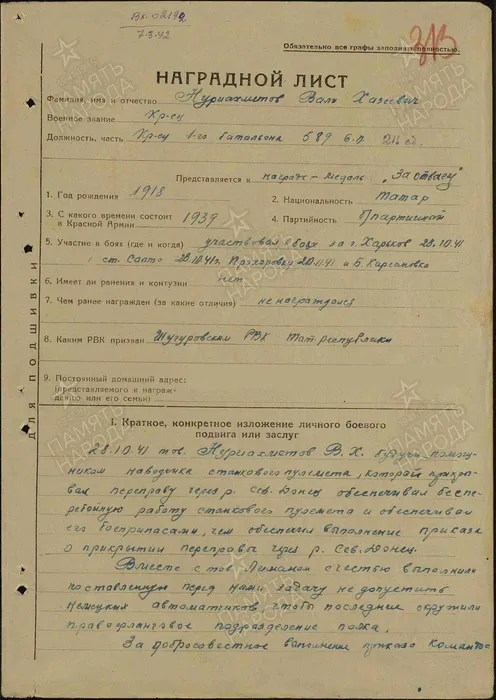 Вх 02192
7-3-42
313
Обязательно все графы заполнять полностью.
НАГРАДНОЙ ЛИСТ
Фамилия, имя и отчество Нуриахметов Вали Хазеевич
Военное звание Кр-ец
Должность, часть Кр-ец 1-го батальона 589 с.п.
Представляется к награде - медаль "За отвагу"
1. Год рождения 1918 2. Национальность Татар
3. С какого времени состоит в Красной Армии 1939 4. Партийность б/партийный
5. Участие в боях (где и когда) участвовал в боях за г. Харьков 23.10.41
ст. 28.10.41г. Прохоровку 20.11.41 и Б.
6. Имеет ли ранения и контузии нет
7. Чем ранее награжден (за какие отличия) не награждался
8. Каким РВК призван Шугуровским РВК Татреспублики
9. Постоянный домашний адрес:
(представляемого к награждению или его семьи)
ДЛЯ ПОДШИВКИ
I. Краткое, конкретное изложение личного боевого
подвига или заслуг
28.10.41 тов. Нуриахметов В.Х. будучи помощ-
ником наводчика станкового пулемета, который прикры-
вал переправу через р. Сев. Донец обеспечивал беспе-
ребойную работу станкового пулемета и обеспечивал
его боеприпасами, чем обеспечил выполнение приказа
о прикрытии переправы через р. Сев. Донец.
Вместе с тов. с честью выполнили
поставленную перед ними задачу не допустить
немецких автоматчиков, чтобы последние окружили
правофланговое подразделение полка.
За добросовестное выполнение приказа командо-
ПАМЯТЬ НАРОДА